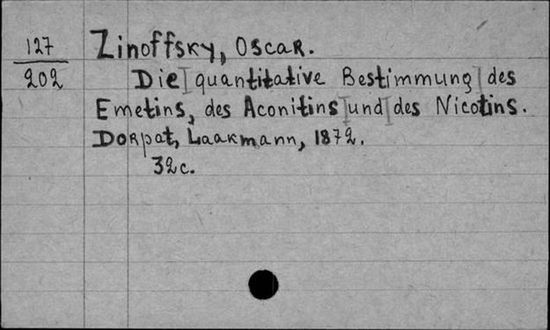 127
202
Zinoffsky, Oscar.
Die quantitative Bestimmung des
Emetins, des Aconitins und des Nicotins.
Dorpat, Laakmann, 1872.
32c.